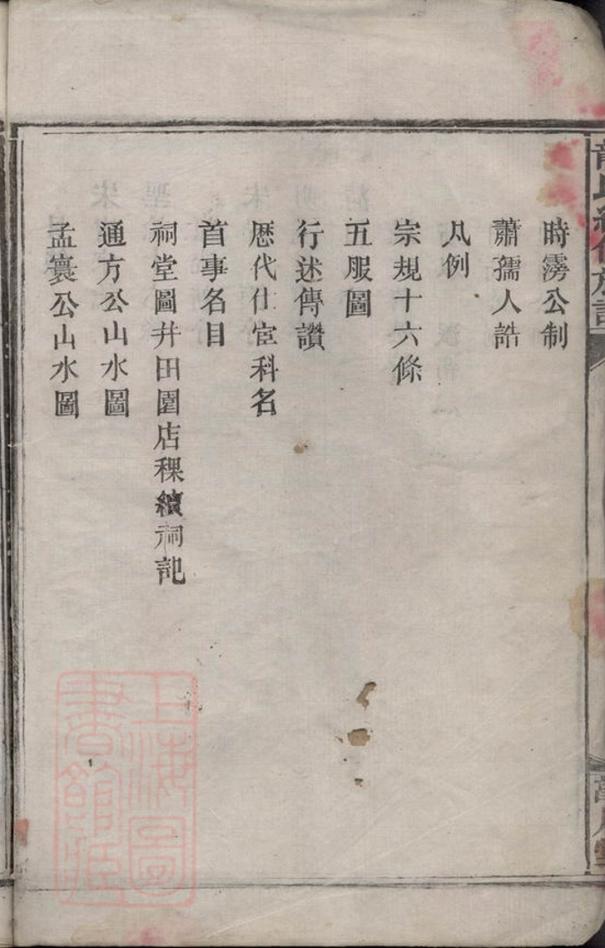 時霶公制
蕭孺人誥
凡例
宗規十六條
五服圖
行述傳讃
歴代仕宦科名
首事名目
祠堂圖井田園店稞續祠記
通方公山水圖
孟寰公山水圖
上海圖書館藏